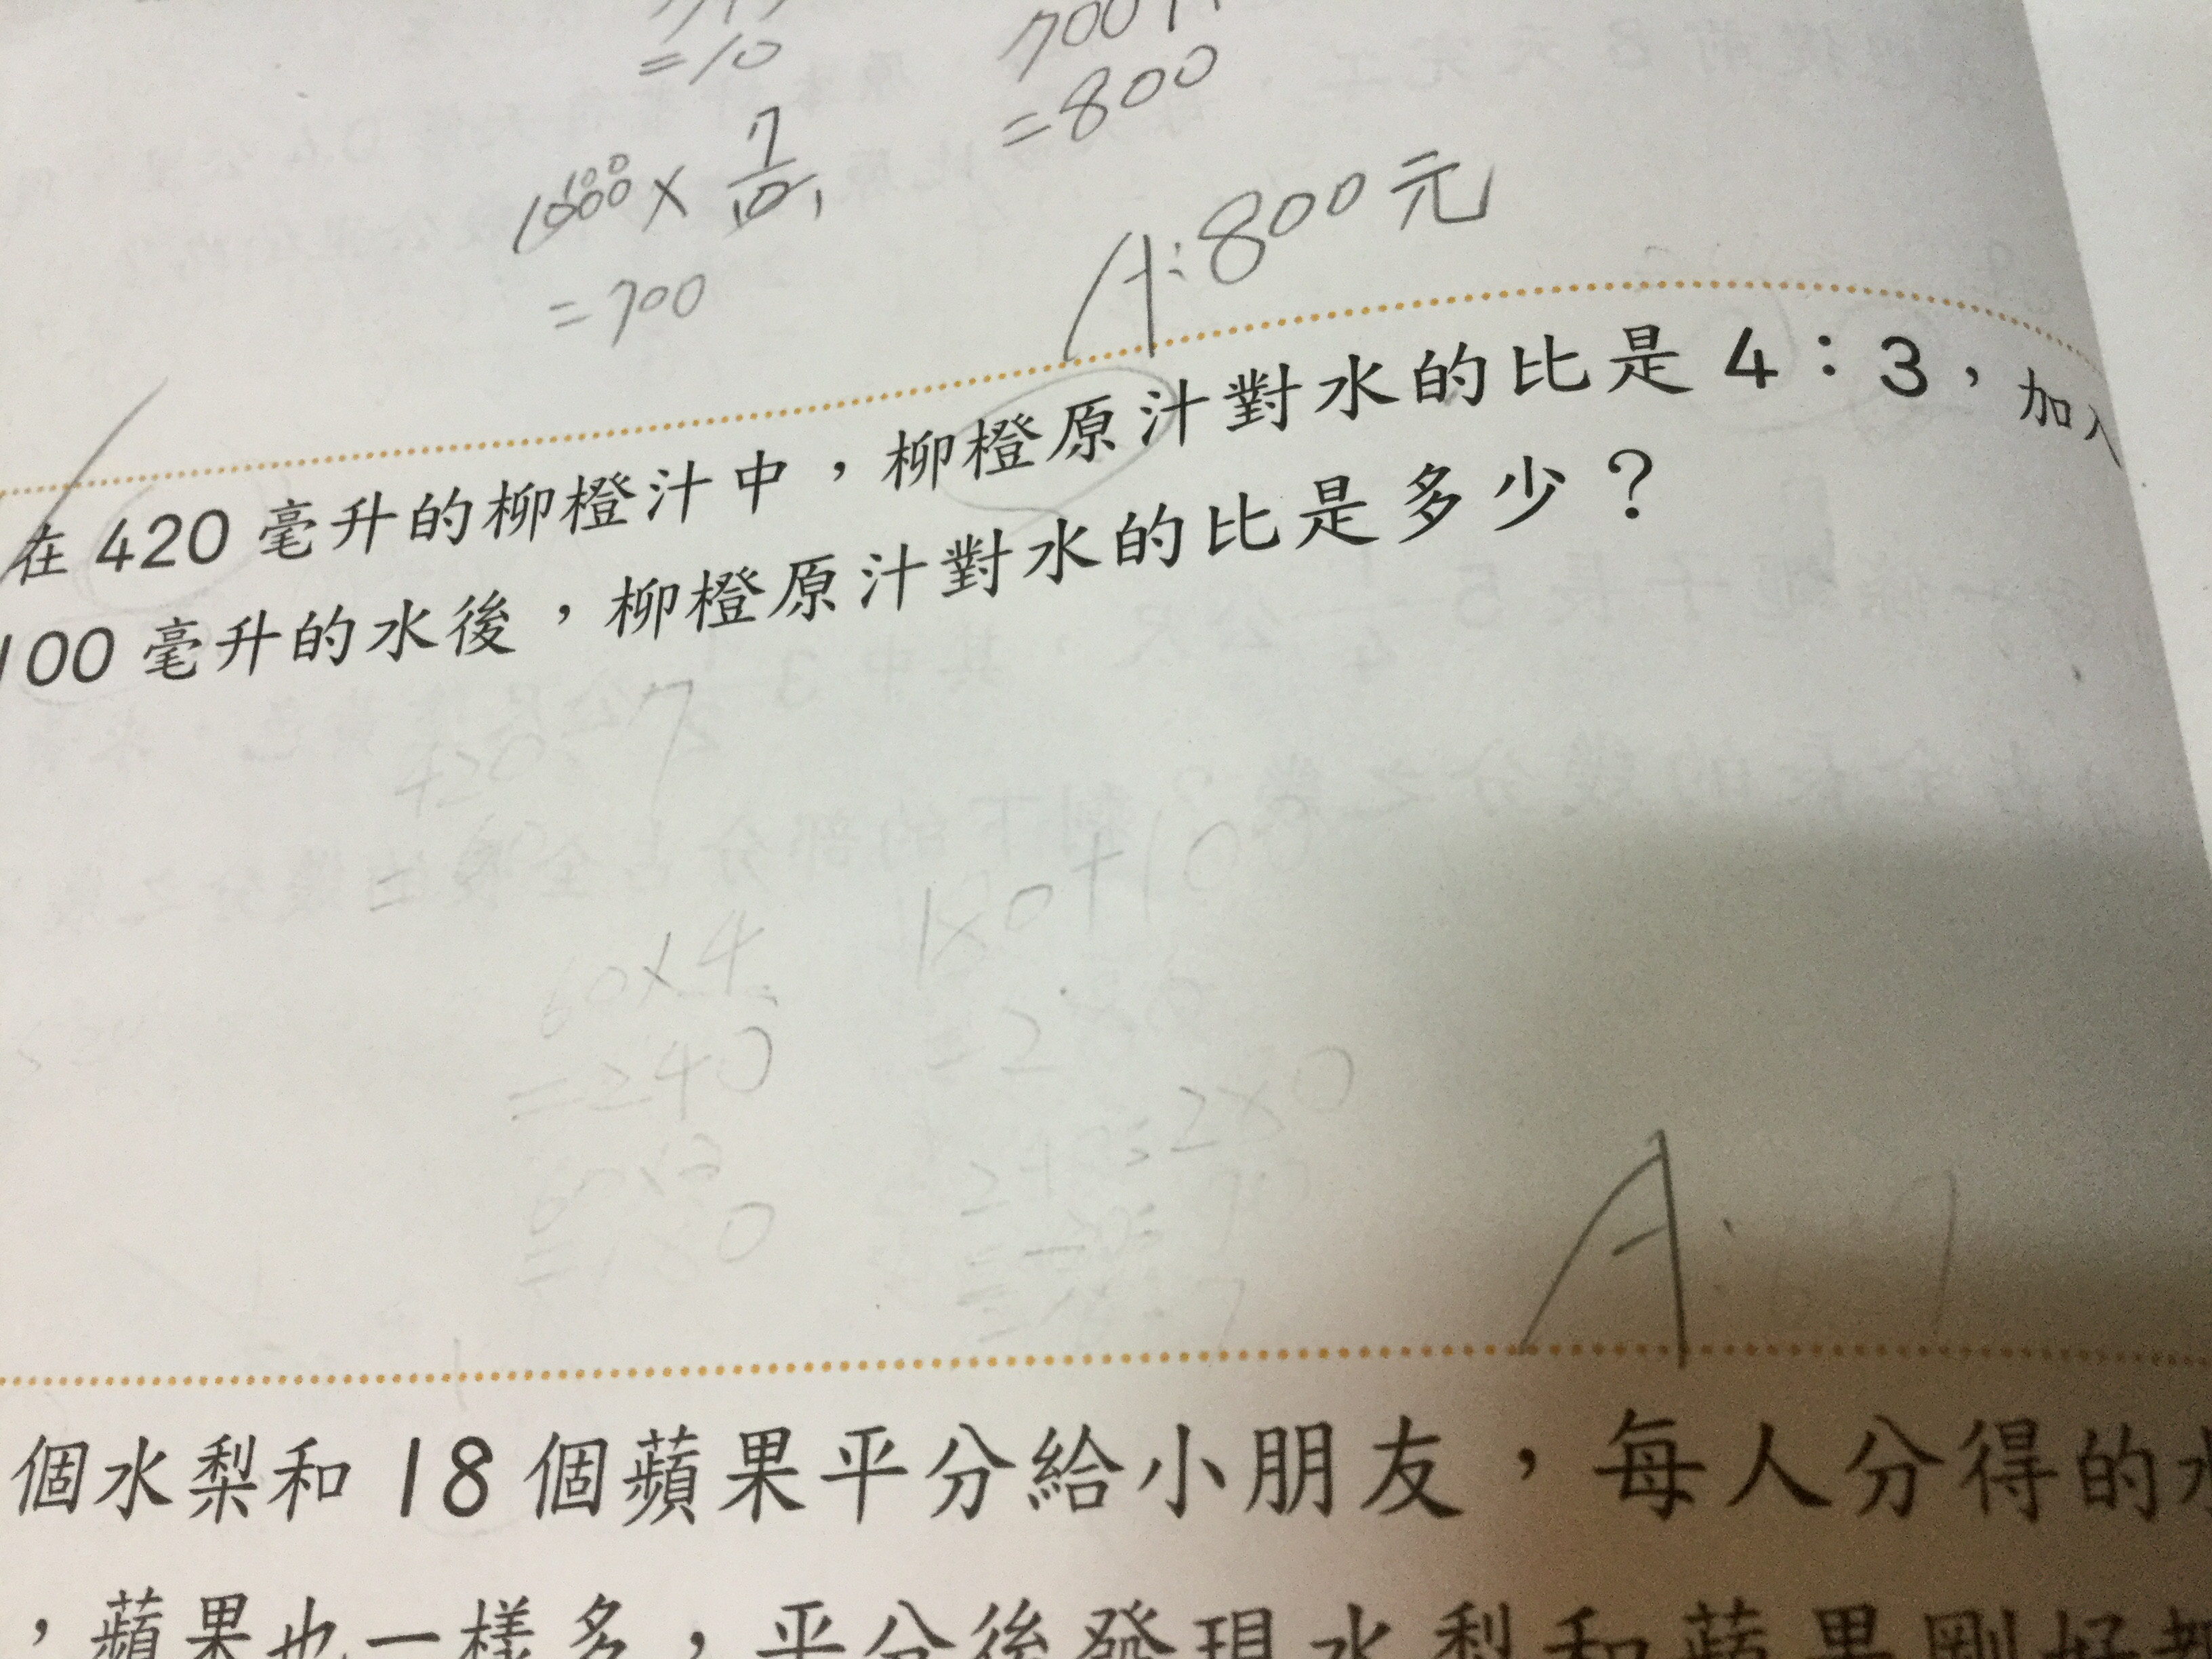 =10
=800
1000 100 × 7/10 1
=700
A:800元
在420毫升的柳橙汁中，柳橙原汁對水的比是4：3，加入
100毫升的水後，柳橙原汁對水的比是多少？
420÷7
=60
180+100
60×4
=240
=280
60×3
=180
240:280
A:
個水梨和18個蘋果平分給小朋友，每人分得的水
，蘋果也一樣多，平分後發現水梨和蘋果剛好都